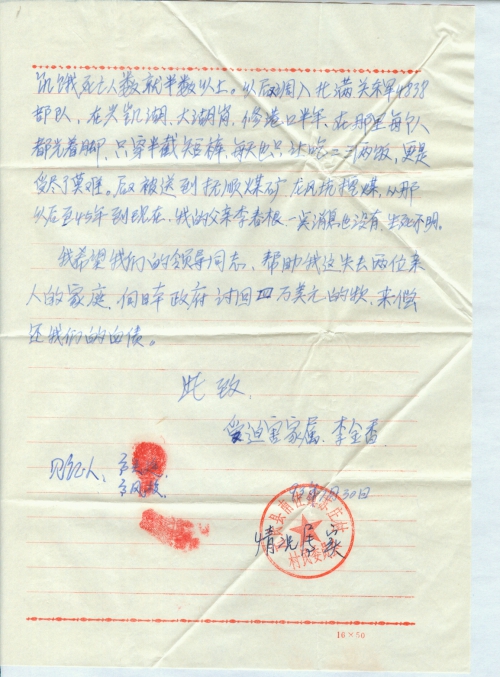 饥饿死亡人数就半数以上。以后调入北满关东军4838
部队，在兴凯湖，大湖岗，修巷口半年，在那里每个人
都光着脚，只穿半截短裤，每天也只让吃二三两饭，更是
受尽了莫难。后又被送到抚顺煤矿龙凤坑挖煤，从那
以后至45年到现在，我的父亲李春根一点消息也没有，生死不明。
我希望我们的领导同志，帮助我这失去两位亲
人的家庭，向日本政府讨回 万美元的款，来偿
还我们的血债。
此致
受迫害家属：李金香
见证人：
月30日
情况属实
村民委员会
16×50